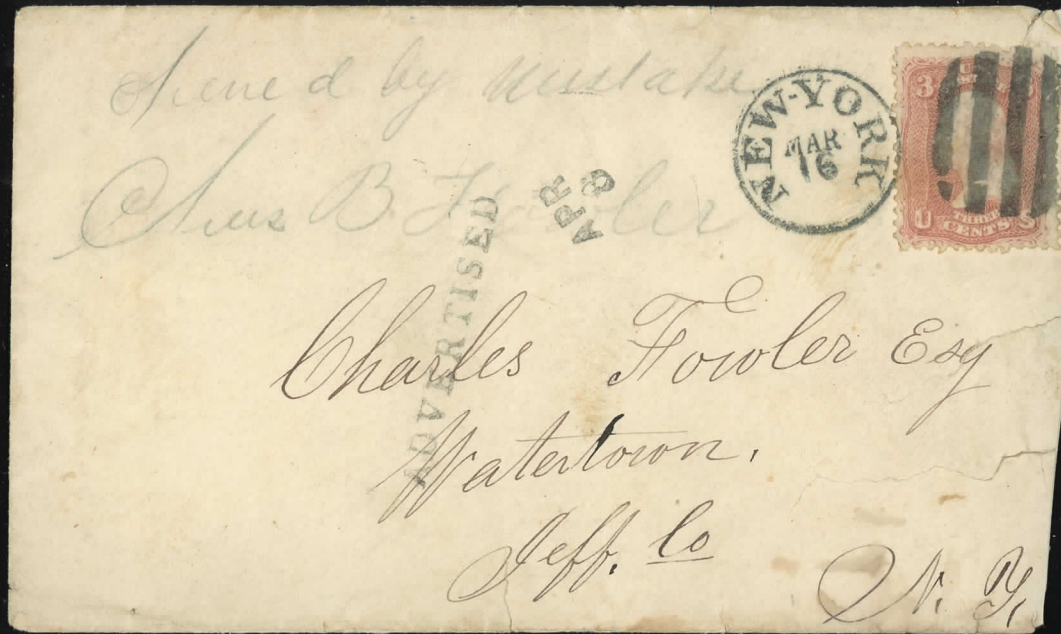 by mistake
Chas B. Fowler
NEW-YORK
MAR
16
3
U THREE CENTS S
APR
8
ADVERTISED
Charles Fowler Esq
Watertown.
Jeff. Co
N. Y.